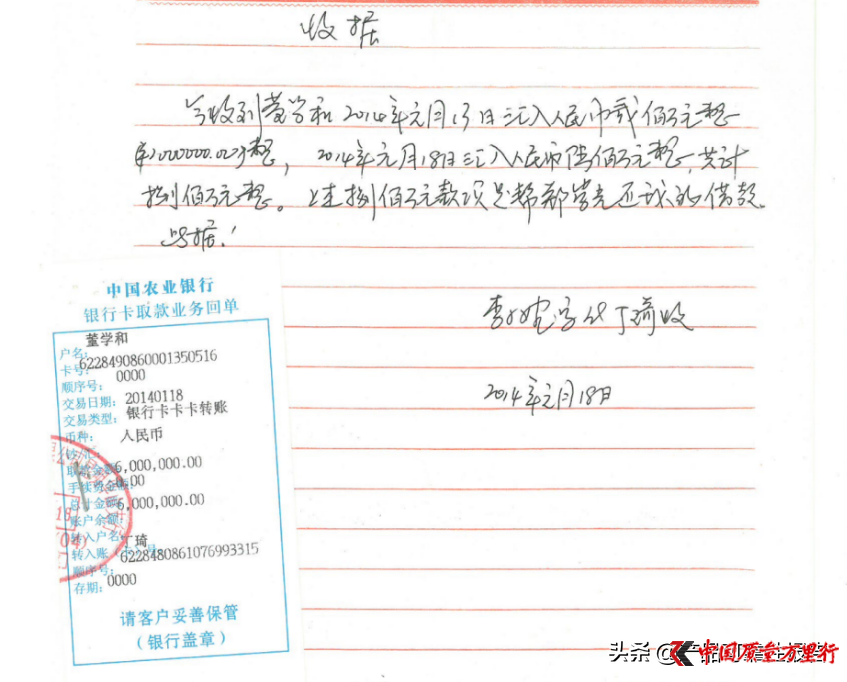 收据
今收到董学和2014年元月13日汇入人民币贰佰万元整
(¥2000000.00)整，2014年元月18日汇入人民币陆佰万元整，共计
捌佰万元整。上述捌佰万元款项是
还我的借款。
此据！
代丁琦收
2014年元月18日
中国农业银行
银行卡取款业务回单
户名: 董学和
卡号: 6228490860001350516
顺序号: 0000
交易日期: 20140118
交易类型: 银行卡卡卡转账
币种: 人民币
取款金额: 6,000,000.00
手续费金额: 0.00
总计金额: 6,000,000.00
账户余额:
转入户名: 丁琦
转入账 6228480861076993315
顺序号: 0000
存期:
请客户妥善保管
（银行盖章）
头条 @产品可靠性报告
中国质量万里行